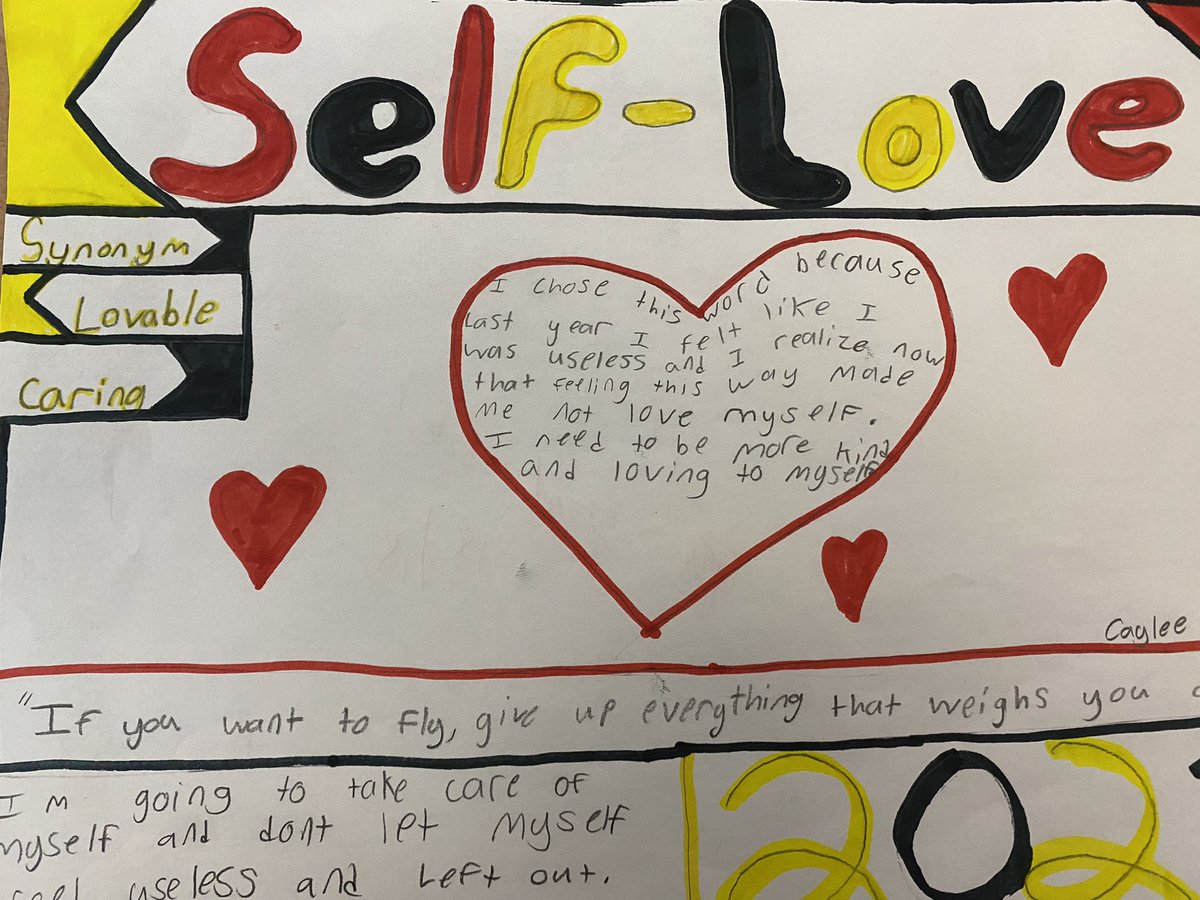 Self-Love
Synonym
Lovable
Caring
I chose this word because
Last year I felt like I
was useless and I realize now
that feeling this way made
me not love myself.
I need to be more kind
and loving to myself
Caylee
"If you want to fly, give up everything that weighs you
Im going to take care of
myself and dont let myself
feel useless and Left out.
202